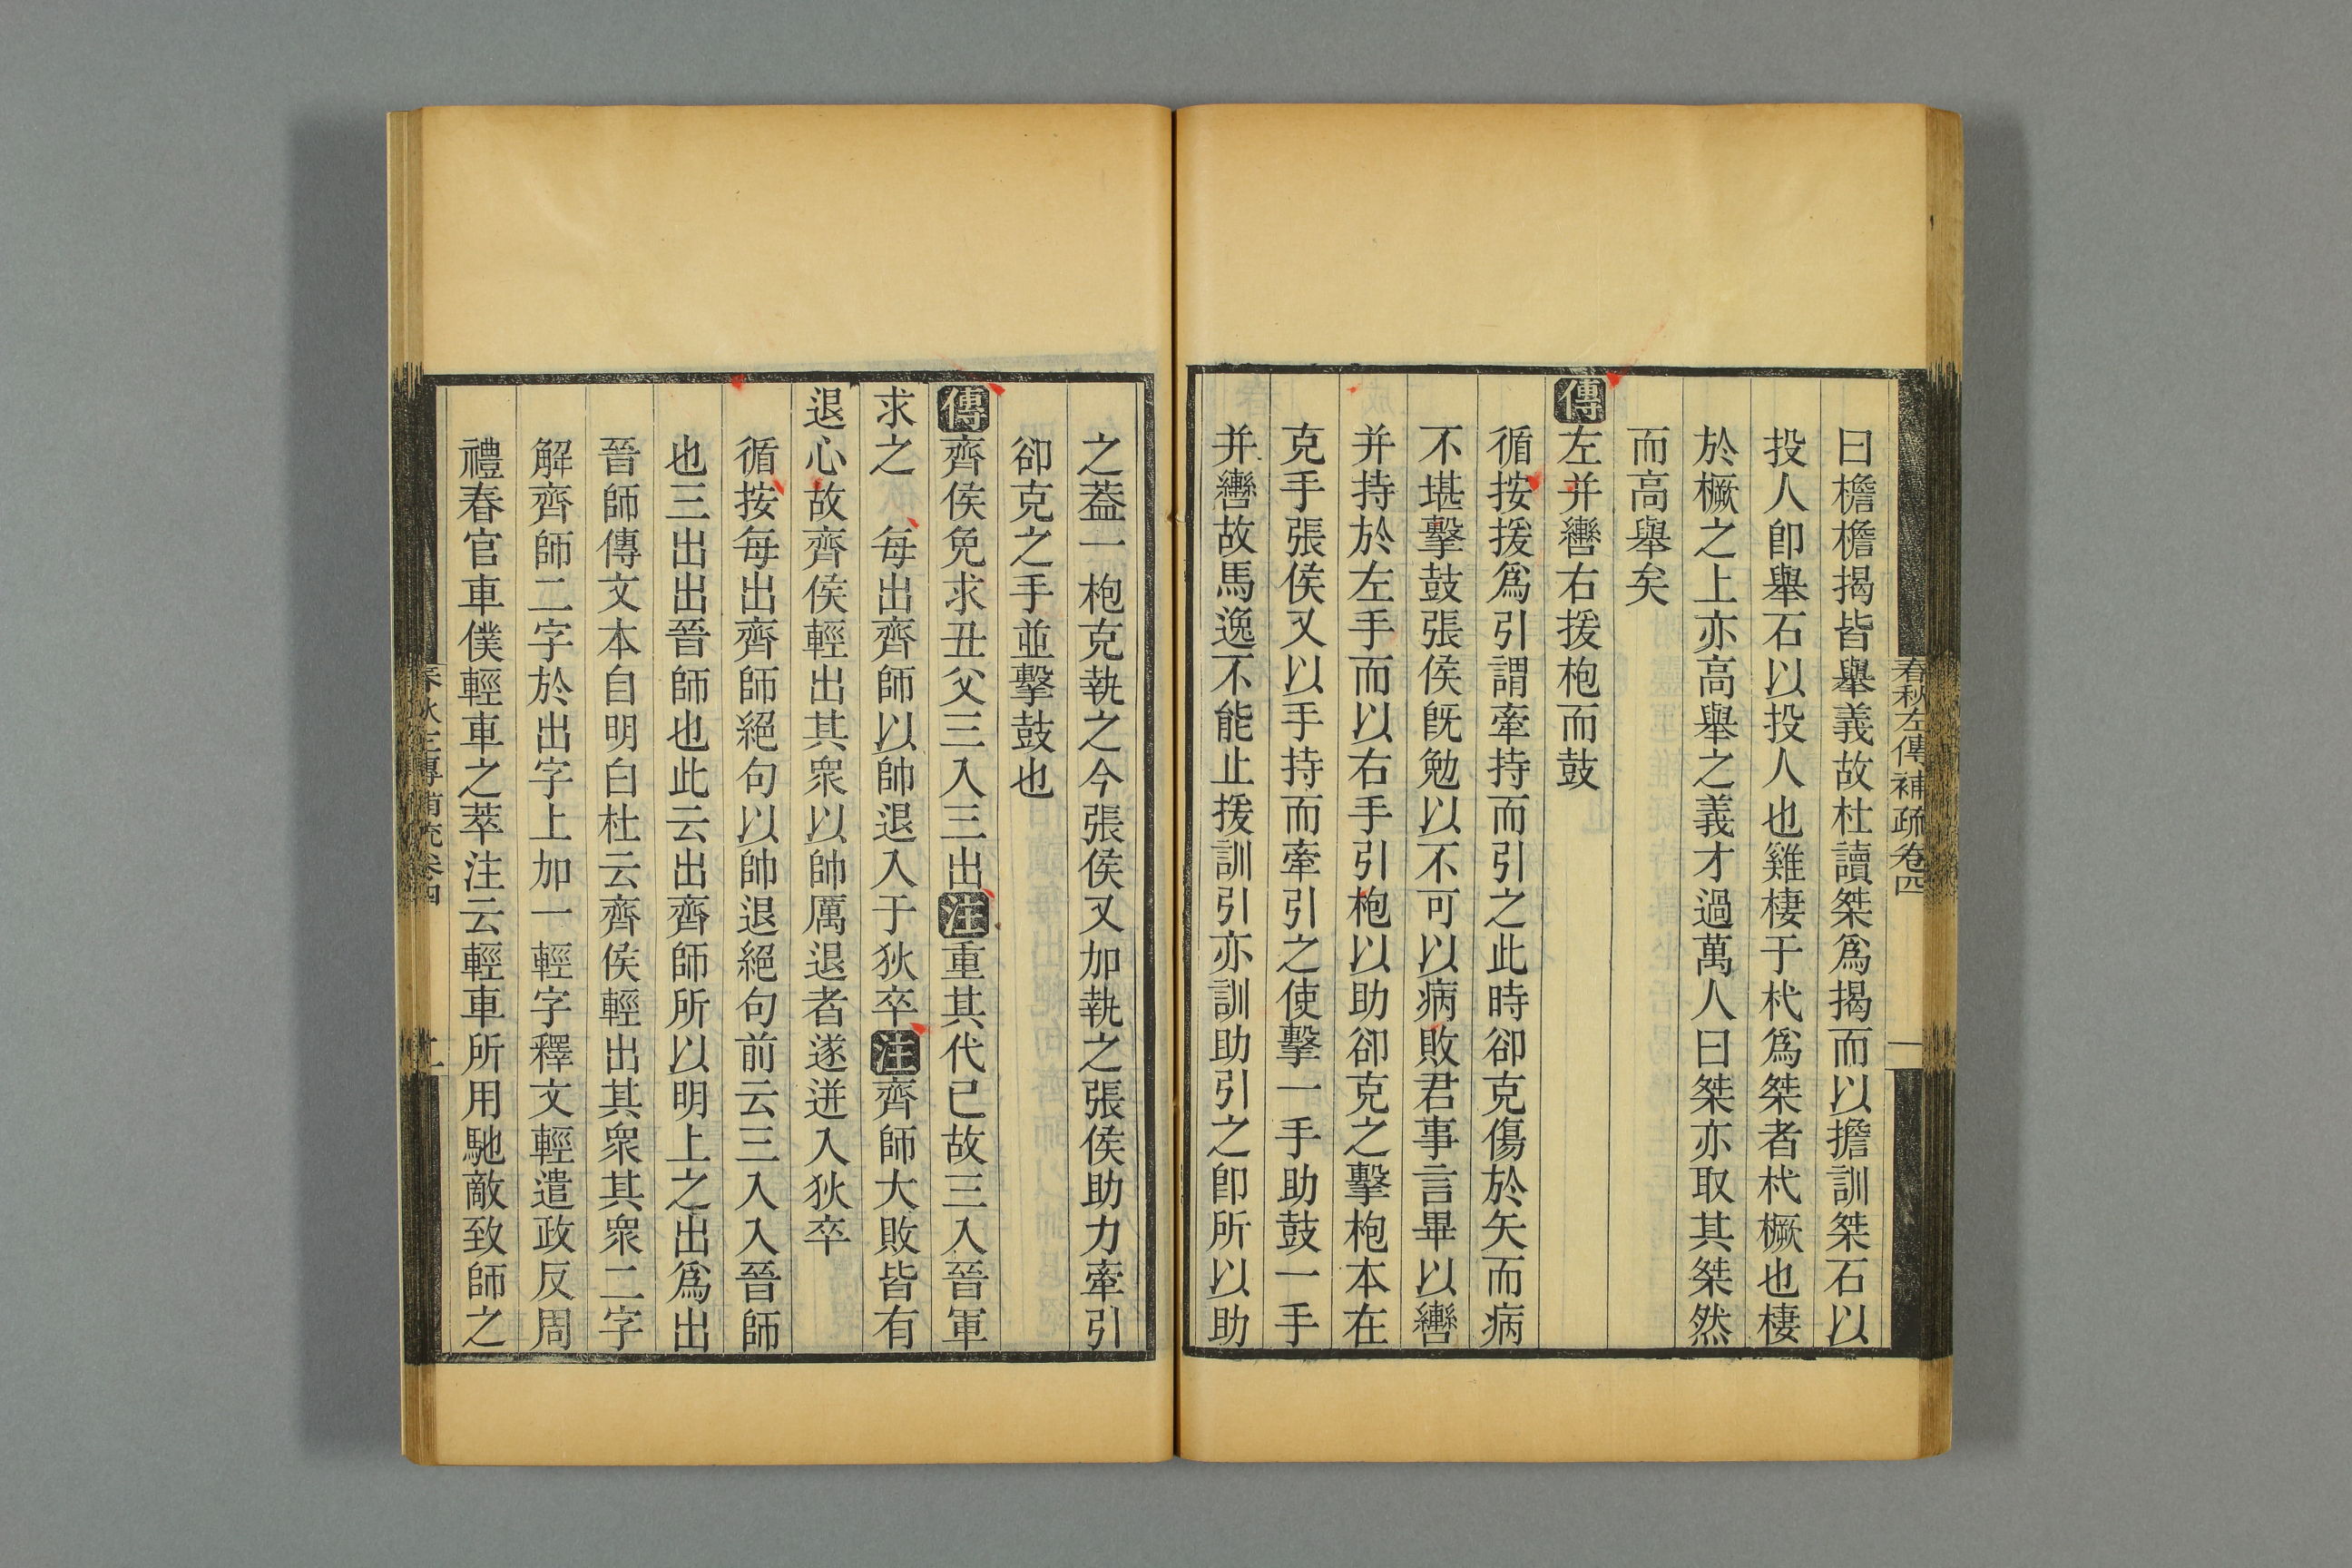 春秋左傳補疏卷四
一
曰檐檐揭皆舉義故杜讀桀爲揭而以擔訓桀石以
投人卽舉石以投人也雞棲于杙爲桀者杙橛也棲
於橛之上亦高舉之義才過萬人曰桀亦取其桀然
而高舉矣
傳左并轡右援枹而鼓
循按援爲引謂牽持而引之此時卻克傷於矢而病
不堪擊鼓張侯旣勉以不可以病敗君事言畢以轡
并持於左手而以右手引枹以助卻克之擊枹本在
克手張侯又以手持而牽引之使擊一手助鼓一手
并轡故馬逸不能止援訓引亦訓助引之卽所以助
之葢一枹克執之今張侯又加執之張侯助力牽引
卻克之手並擊鼓也
傳齊侯免求丑父三入三出注重其代已故三入晉軍
求之 每出齊師以帥退入于狄卒注齊師大敗皆有
退心故齊侯輕出其衆以帥厲退者遂迸入狄卒
循按每出齊師絕句以帥退絕句前云三入入晉師
也三出出晉師也此云出齊師所以明上之出爲出
晉師傳文本自明白杜云齊侯輕出其衆其衆二字
解齊師二字於出字上加一輕字釋文輕遣政反周
禮春官車僕輕車之萃注云輕車所用馳敵致師之
春秋左傳補疏卷四
二